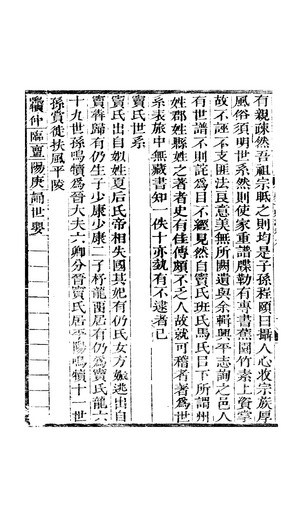 有親疎然吾祖宗眎之則均是子孫程頤曰攝人心收宗族厚
風俗須明世系然則使家重譜牒勒有專書蕉園竹素上資掌
故不誣不支匪法良意美無所闕遺與余輯興平志詢之邑人
有世譜不則託為日不經見然自竇氏班氏馬氏曰下所謂州
姓郡姓縣姓之著者史有佳傳頗不之人故就可稽者著為世
系表旅中無藏書知一佚十亦埶有不逮者已
竇氏世系
竇氏出自姒姓夏后氏帝相失國其妃有仍氏女方娠逃出自
竇奔歸有仍生子少康少康二子杼龍畱居有仍為竇氏龍六
十九世孫鳴犢為晉大夫六卿分晉竇氏居平陽鳴犢十一世
孫賞徙扶風平陵
犢仲臨亶陽庚誦世嬰